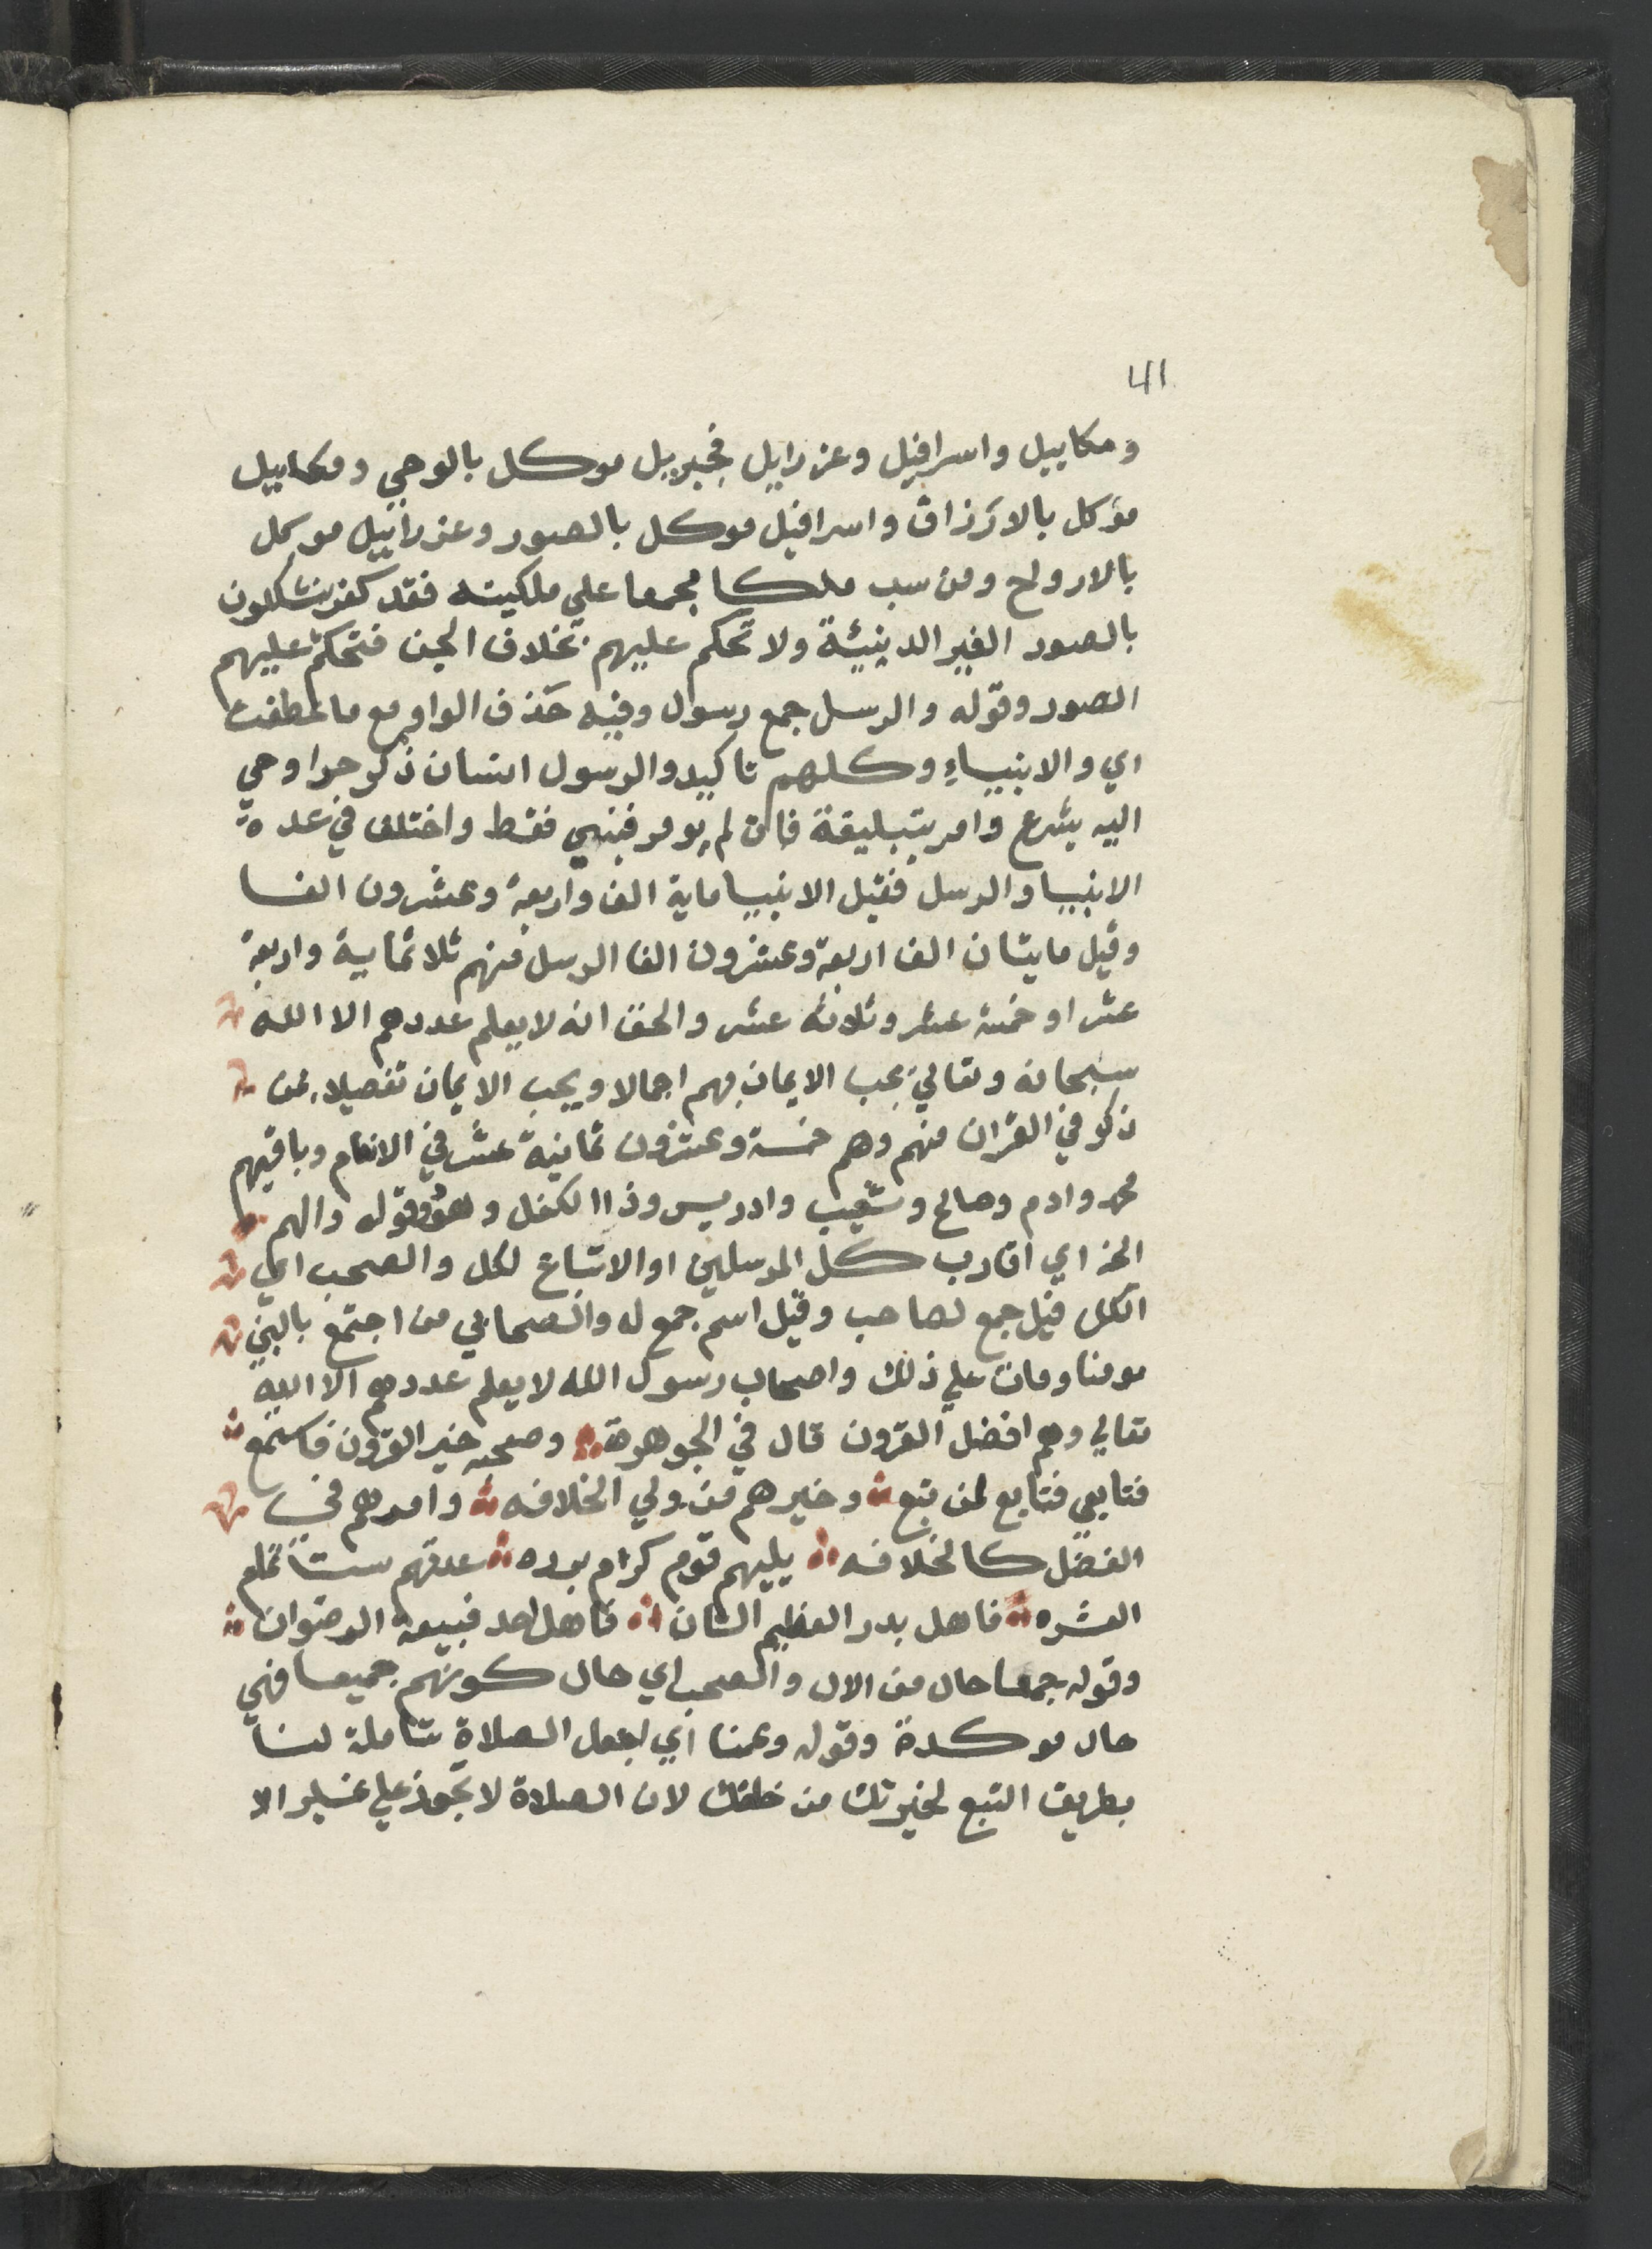 41
ومكاييل واسرافيل وعزرايل فجبريل موكل بالوحي ومكاييل
مؤكل بالارزاق واسرافيل موكل بالصور وعزراييل موكل
بالارواح ومن سب ملكا مجمعا علي ملكيته فقد كفر يتشكلون
بالصور الغير الدينيئة ولا تحكم عليهم بخلاف الجن فتحكم عليهم
الصور وقوله والرسل جمع رسول وفيه حذف الواو مع ما عطفت
اي والانبياء وكلهم تاكيد والرسول انسان ذكر حرا وحي
اليه بشرع وامر بتبليغة فان لم يومر فنبي فقط واختلف في عدة
الانبيا والرسل فقيل الانبيا ماية الف واربعة وعشرون الفا
وقيل مايتان الف اربعة وعشرون الفا الرسل منهم ثلاثماية واربعة
عشر او خمسة عشر وثلاثه عشر والحق انه لا يعلم عددهم الا الله
سبحانه وتعالي يجب الايمان بهم اجمالا ويجب الايمان تفصيلا بمن
ذكر في القران منهم وهم خمسة وعشرون ثمانية عشر في الانعام وباقيهم
محمد وادم وصالح وشعيب وادريس وذا الكفل وهود وقوله والهم
الخ اي اقارب كل المرسلين او الاتباع لكل والصحب اي
الكل قيل جمع لصاحب وقيل اسم جمع له والصحابي من اجتمع بالنبي
مومنا ومات علي ذلك واصحاب رسول الله لا يعلم عددهم الا الله
تعالي وهم افضل القرون قال في الجوهرة وصحبه خير القرون فاستمع
فتابعي فتابع لمن تبع وخيرهم من ولي الخلافه وامرهم في
الفضل كالخلافه يليهم قوم كرام برره عدتهم ست تمام
العشره فاهل بدر العظيم الشان فاهل احد فبيعة الرضوان
وقوله جمعا حال من الال والصحب اي حال كونهم جميعا فهي
حال موكدة وقوله وعمنا اي اجعل الصلاة شاملة لنا
بطريق التبع لخيرتك من خلقك لان الصلاة لا تجوز علي غير الا